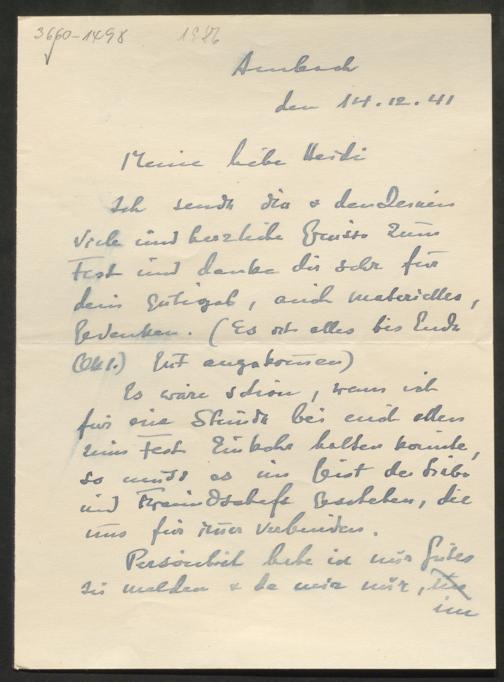 3660-1498 1986
Ambach
den 14.12.41
Meine liebe Heidi
Ich sende dir + den Deinen
viele und herzliche Grüsse zum
Fest und danke dir sehr für
dein gütiges, auch materielles,
Gedenken. (Es ist alles bis Ende
Okt.) gut angekommen)
Es wäre schön, wenn ich
für eine Stunde bei euch allen
zum Fest Einkehr halten könnte,
so muss es im Geist der Liebe
und Freundschaft geschehen, die
uns für immer verbinden.
Persönlich habe ich nur Gutes
zu melden +
im